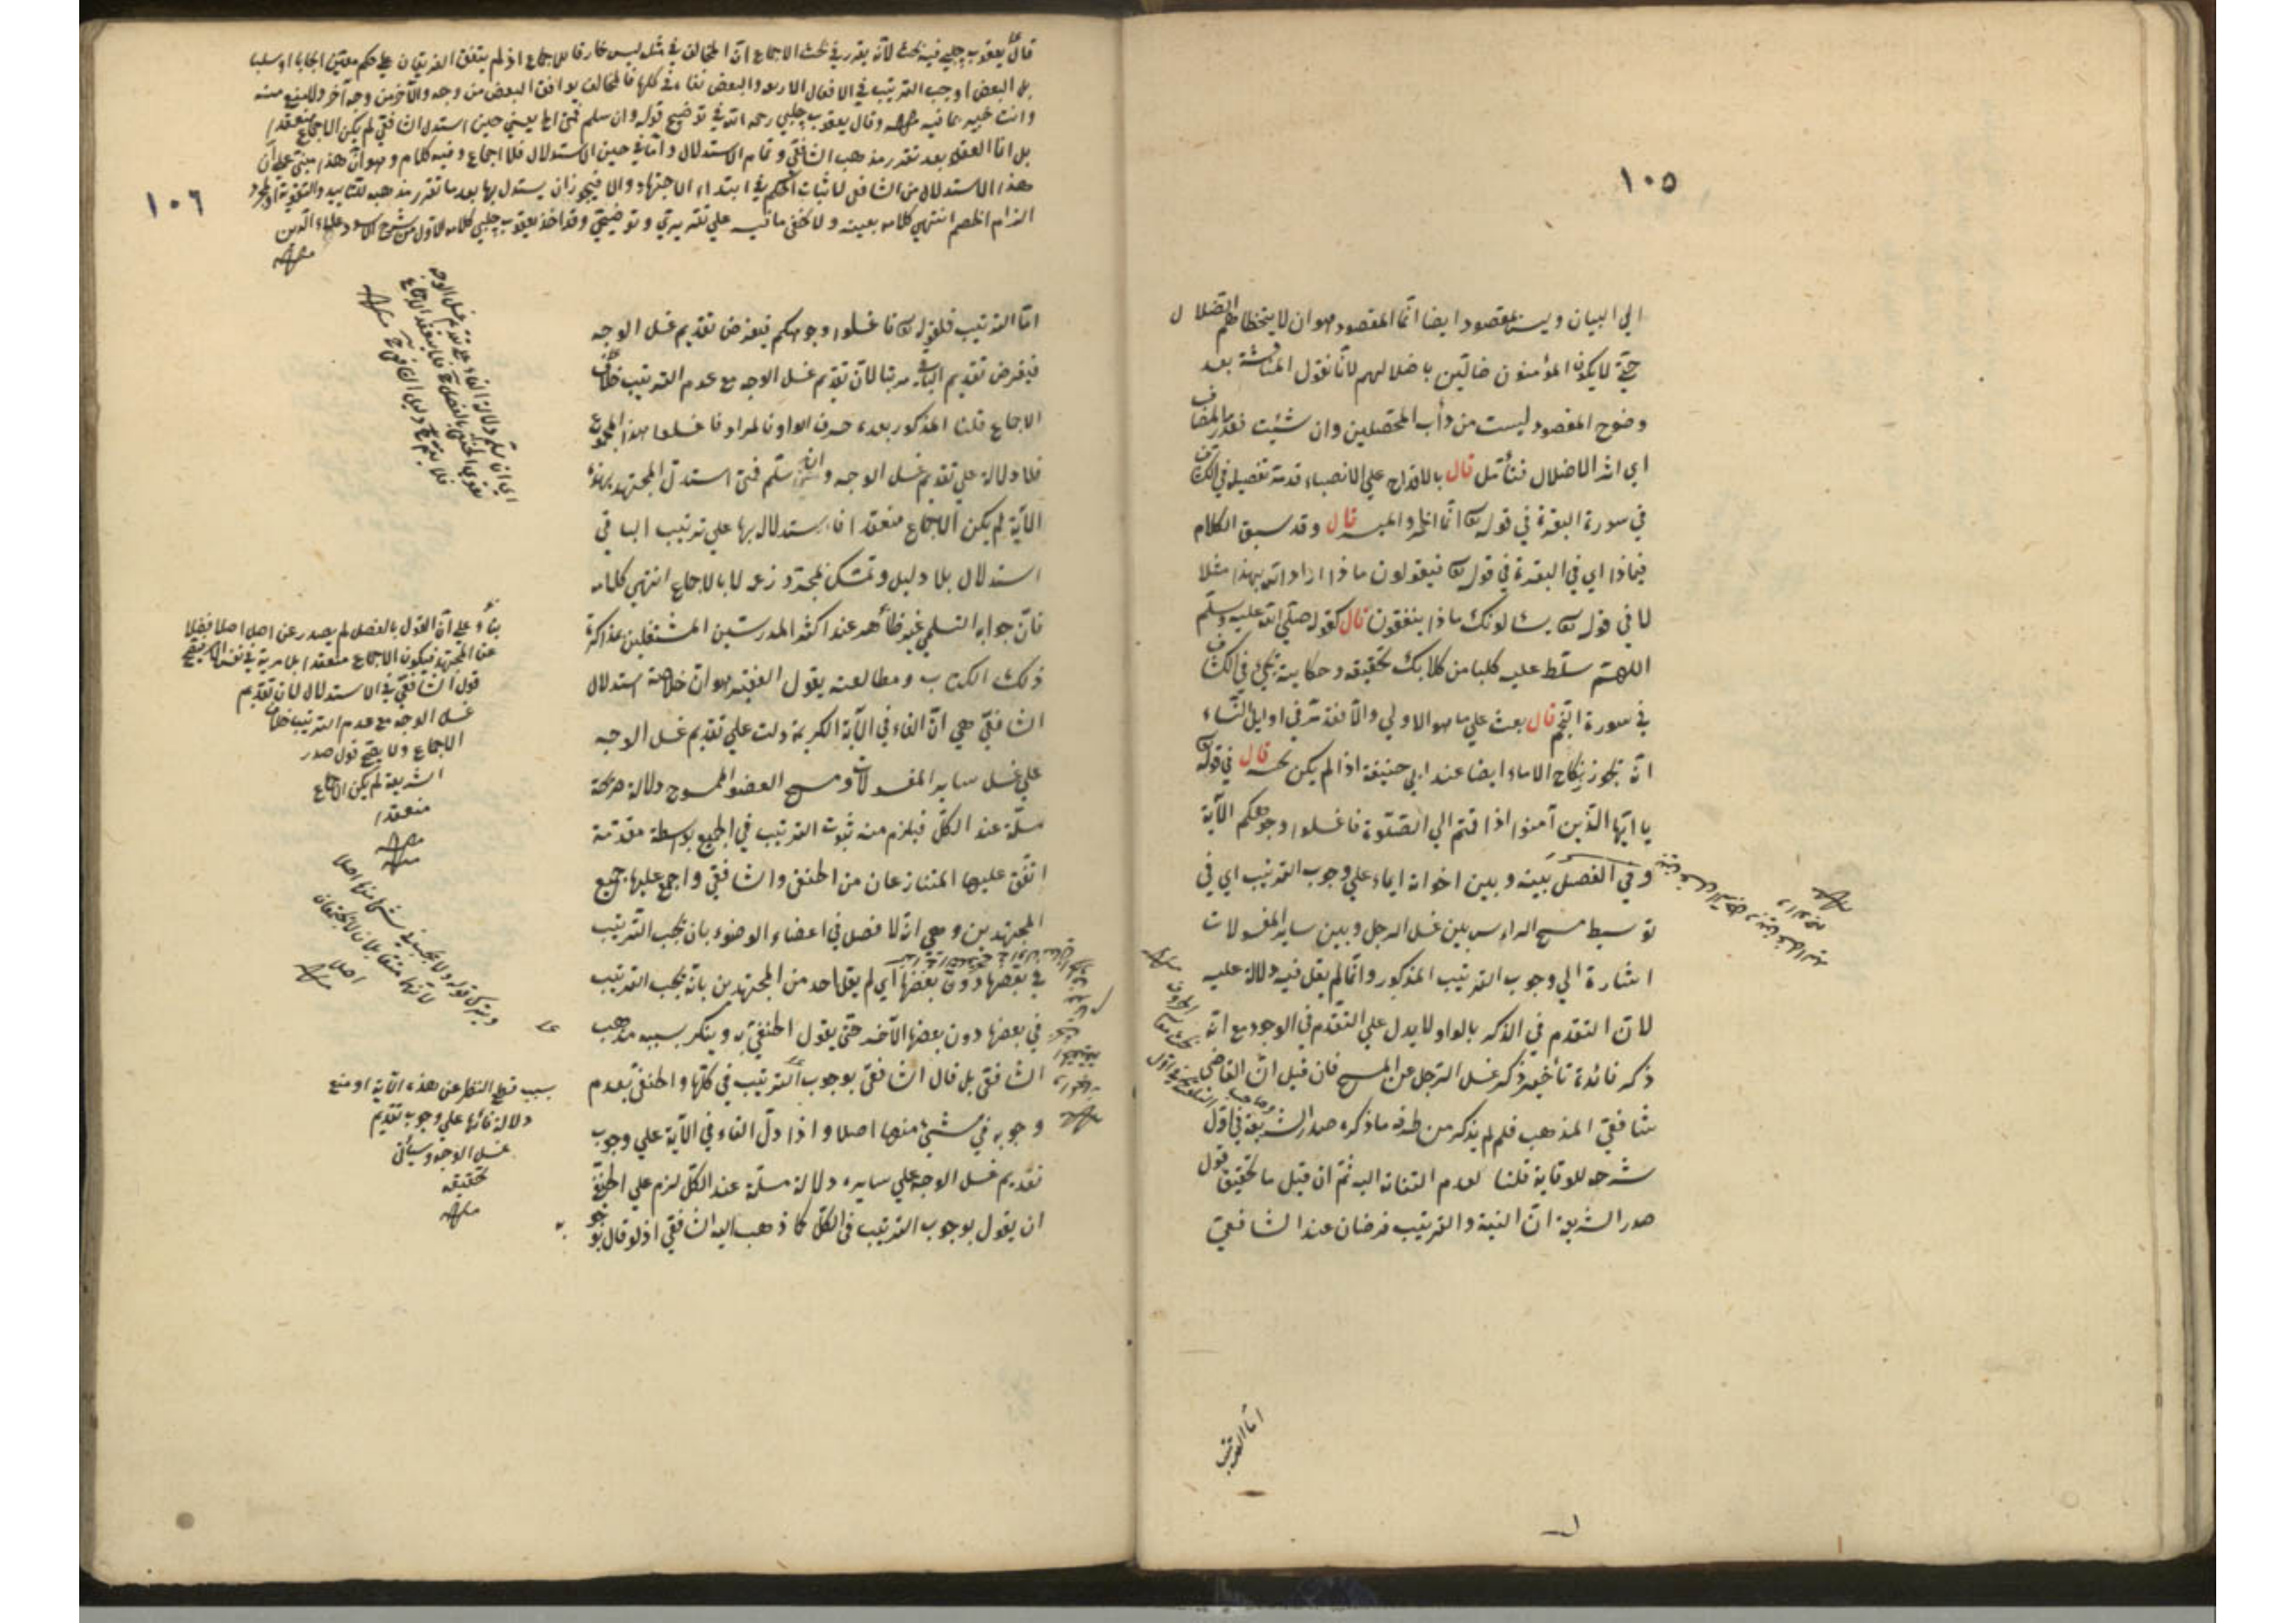 ١٠٥
الي البيان وليس بمقصود ايضا انما المقصود هو ان لا يتخطاهم الضلال
حتى لا يكون المؤمنون ضالين باضلالهم لانا نقول المناقشة بعد
وضوح المقصود ليست من دأب المحصلين وان شئت فقدر المضاف
اي اثر الاضلال فتأمل قال بالاقداح علي الانصباء قد مر تفصيله في الكشاف
في سورة البقرة في قوله تعالى انما الخمر والميسر قال وقد سبق الكلام
فيماذا اي في البقرة في قوله تعالى فيقولون ماذا اراد الله بهذا مثلا
لا في قوله تعالى يسئالونك ماذا ينفقون قال كقوله صلي الله عليه وسلم
اللهم سلط عليه كلبا من كلابك تحقيقه وحكايته يجئ في الكشاف
في سورة النجم قال بعث علي ما هو الاولي والا فقد مر في اوايل النساء
انه يجوز نكاح الاماء ايضا عند ابي حنيفة اذا لم يكن تحته قال في قوله تعالى
يا ايها الذين آمنوا اذا قمتم الي الصلوة فاغسلوا وجوهكم الآية
وفي الفصل بينه وبين اخواته ايماء علي وجوب الترتيب اي في
توسيط مسح الراس بين غسل الرجل وبين ساير المغسولات
اشارة الي وجوب الترتيب المذكور وانما لم يقل فيه دلالة عليه
لان التقدم في الذكر بالواو لا يدل علي التقدم في الوجود مع انه
ذكر فائدة تأخير ذكر غسل الرجل عن المسح فان قيل ان القاضي
شافعي المذهب فلم لم يذكر من طرفه ما ذكره صدر الشريعة في اول
شرحه للوقاية قلنا لعدم التفاته اليه ثم ان قيل ما تحقيق قول
صدر الشريعة ان النية والترتيب فرضان عند الشافعي
اما الترتيب
١٠٦
قال يعقوب چلبي فيه بحث لانه يقرر في بحث الاجماع ان المخالف في مثله ليس خارقا للاجماع اذ لم يتفق الفريقان علي حكم معين ايجابا او سلبا
بل البعض اوجب الترتيب في الافعال الاربعة والبعض نفاه في كلها فالمخالف يوافق البعض من وجه والآخر من وجه آخر ولا منع منه
وانت خبير بما فيه وقال يعقوب چلبي رحمه الله في توضيح قوله وان سلم فمتى الخ يعني حين استدل الشافعي لم يكن الاجماع منعقدا
بل انما انعقد بعد تقرر مذهب الشافعي وتمام الاستدلال واما في حين الاستدلال فلا اجماع وفيه كلام وهو ان هذا مبني علي ان
هذا الاستدلال من الشافعي لاثبات الحكم في ابتداء الاجتهاد والا فيجوز ان يستدل بها بعد ما تقرر مذهبه للتأييد والتقوية او لمجرد
الزام الخصم انتهي كلامه بعينه ولا يخفى ما فيه علي تقريري وتوضيحي وقد اخذ يعقوب چلبي كلامه الاول من شرح
اما الترتيب فلقوله تعالى فاغسلوا وجوهكم فيفرض تقديم غسل الوجه
فيفرض تقديم الباقي مرتبا لان تقديم غسل الوجه مع عدم الترتيب خلاف
الاجماع قلنا المذكور بعده حرف الواو فالمراد فاغسلوا هذا المجموع
فلا دلالة علي تقديم غسل الوجه وان سلم فمتى استدل المجتهد بهذه
الآية لم يكن الاجماع منعقدا فاستدلاله بها علي ترتيب الباقي
استدلال بلا دليل وتمسك بمجرد زعمه لا بالاجماع انتهي كلامه
فان جوابه التسليمي غير ظاهر عند اكثر المدرسين المشتغلين بمذاكرة
ذلك الكتاب ومطالعته يقول الفقير هو ان خلاصة استدلال
الشافعي هي ان الفاء في الآية الكريمة دلت علي تقديم غسل الوجه
علي غسل ساير المغسولات ومسح العضو الممسوح دلالة صريحة
مسلمة عند الكل فيلزم منه ثبوت الترتيب في الجميع بواسطة مقدمة
اتفق عليها المتنازعان من الحنفي والشافعي واجمع عليها جميع
المجتهدين وهي انه لا فصل في اعضاء الوضوء بان يجب الترتيب
في بعضها دون بعضها اي لم يقل احد من المجتهدين بانه يجب الترتيب
في بعضها دون بعضها الآخر حتى يقول الحنفي به وينكر بسببه مذهب
الشافعي بل قال الشافعي بوجوب الترتيب في كلها والحنفي بعدم
وجوبه في شئ منها اصلا واذا دل الفاء في الآية علي وجوب
تقديم غسل الوجه علي سايره دلالة مسلمة عند الكل لزم علي الحنفي
ان يقول بوجوب الترتيب في الكل كما ذهب اليه الشافعي اذ لو قال بوجو
بناء علي ان القول بالفصل لم يصدر عن احد اصلا فضلا
عن المجتهد فيكون الاجماع منعقدا بلا مرية في نفس الامر فيصح
قول الشافعي في الاستدلال لان تقديم
غسل الوجه مع عدم الترتيب خلاف
الاجماع ولا يصح قول صدر
الشريعة لم يكن الاجماع
منعقدا
بسبب قطع النظر عن هذه الآية او منع
دلالة فائها علي وجوب تقديم
غسل الوجه وسيأتي
تحقيقه